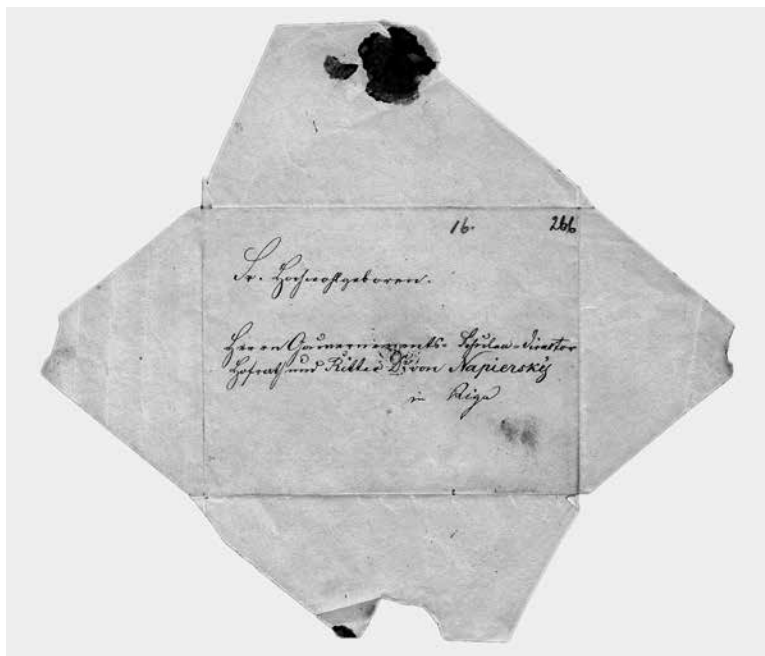 16. 266
Sr. Hochwohlgeboren.
Herrn Gouvernements-Schulen-Director
Hofrath und Ritter Dr. von Napiersky
in Riga